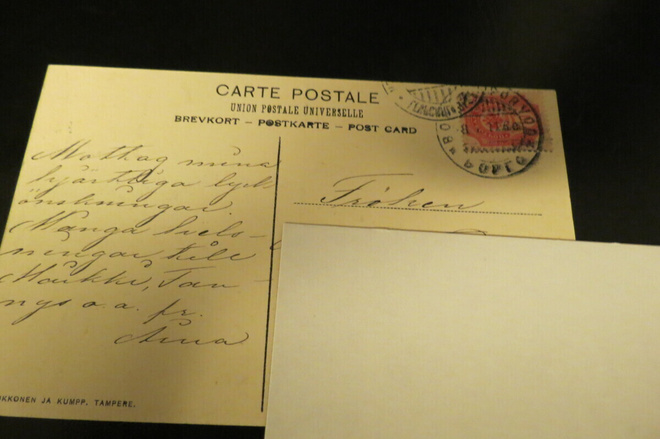 CARTE POSTALE
UNION POSTALE UNIVERSELLE
BREVKORT – POSTKARTE – POST CARD
Mottag mina
hjärtliga lyck-
önskningar.
Många hels-
ningar till
Maikki, Fan-
nys o.a. fr.
Aina
Fröken
BORGÅ
KKONEN JA KUMPP. TAMPERE.